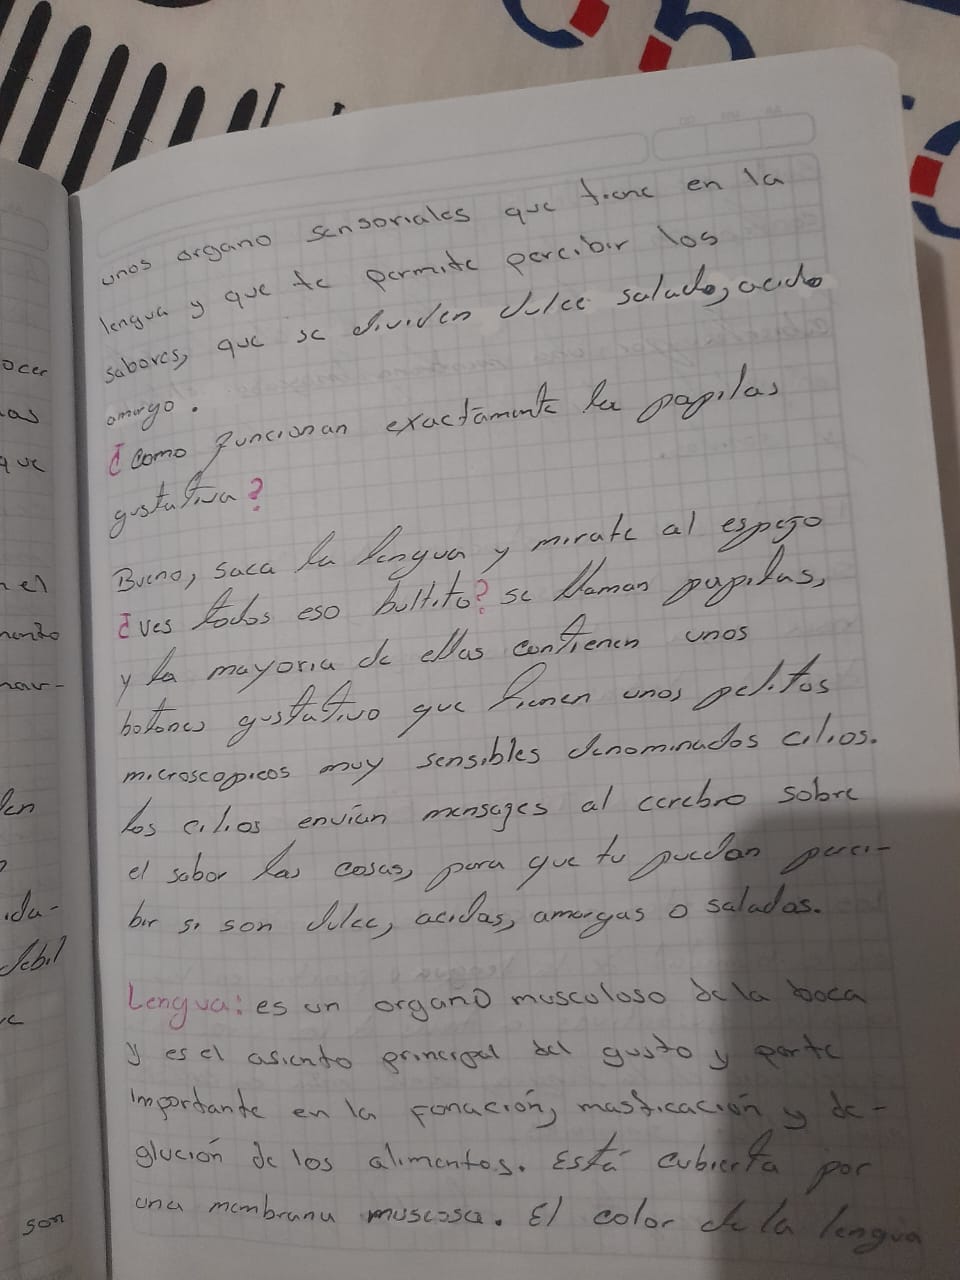 unos organo sensoriales que tiene en la
lengua y que te permite percibir los
sabores, que se dividen dulce salado, acido
amargo.
¿como funcionan exactamente la papilas
gustativa?
Bueno, saca la lengua y mirate al espejo
¿ves todos eso bultito? se llaman papilas,
y la mayoria de ellas contienen unos
botones gustativo que tienen unos pelitos
microscopicos muy sensibles denominados cilios.
los cilios envian mensages al cerebro sobre
el sabor las cosas, para que tu puedan perci-
bir si son dulce, acidas, amargas o saladas.
Lengua: es un organo musculoso de la boca
y es el asiento principal del gusto y parte
importante en la fonación, masticación y de-
glución de los alimentos. Está cubierta por
una membrana muscosa. El color de la lengua
ocer
as
que
el
den
debil
son